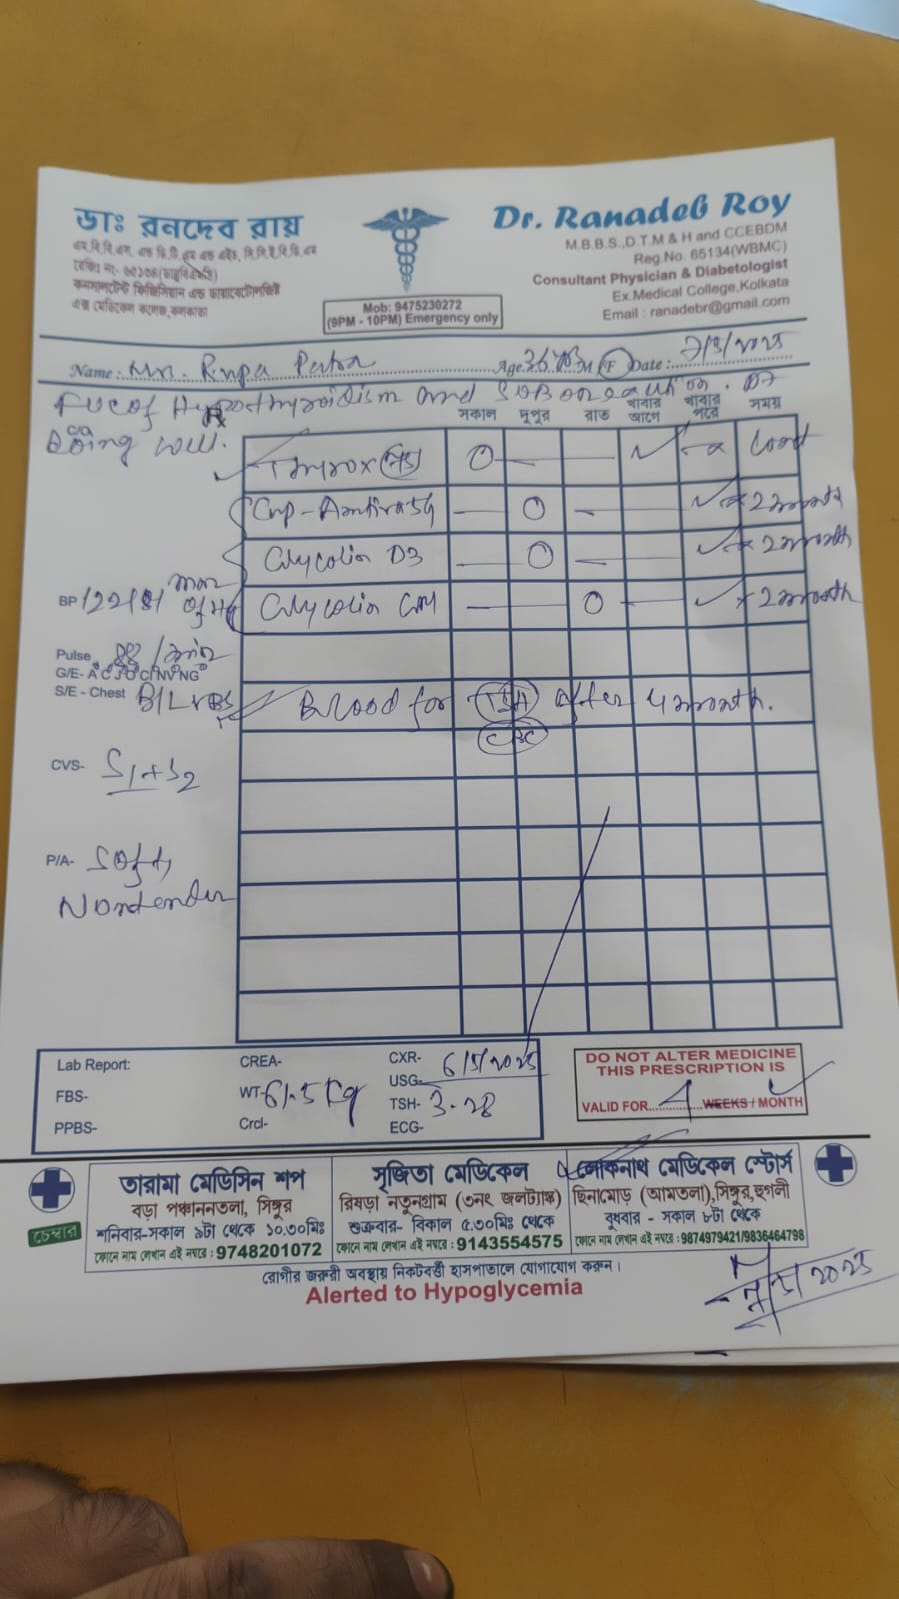 ডাঃ রনদেব রায়
এম.বি.বি.এস, এন্ড ডি.টি.এম এন্ড এইচ, সি.সি.ই.বি.ডি.এম
কনসালটেন্ট ফিজিসিয়ান এন্ড ডায়াবেটোলজিষ্ট
এক্স মেডিকেল কলেজ,কলকাতা
Mob: 9475230272
(9PM - 10PM) Emergency only
Dr. Ranadeb Roy
M.B.B.S.,D.T.M & H and CCEBDM
Reg.No. 65134(WBMC)
Consultant Physician & Diabetologist
Ex.Medical College,Kolkata
Email : ranadebr@gmail.com
Name : Mrs. Rupa Age 36 M/F Date :
Hypothyroidism and
C/O
Doing well.
সকাল দুপুর রাত খাবার আগে খাবার পরে সময়
Thyrox
2 month
Glycolin D3 2 month
Glycolin 2 month
BP 122/81
Pulse 88 /min
G/E- A C J O C N V N G
S/E - Chest B/L VBS
Blood for TSH after 4 month.
CBC
CVS- S1+S2
P/A- Soft,
Nontender
Lab Report:
FBS-
PPBS-
CREA-
WT- 61.5 kg
Crcl-
CXR- 6/5/2025
USG-
TSH- 3.28
ECG-
DO NOT ALTER MEDICINE
THIS PRESCRIPTION IS
VALID FOR 4 WEEKS / MONTH
চেম্বার
তারামা মেডিসিন শপ
বড়া পঞ্চাননতলা, সিঙ্গুর
শনিবার-সকাল ৯টা থেকে ১০.৩০মিঃ
ফোনে নাম লেখান এই নম্বরে : 9748201072
সৃজিতা মেডিকেল
রিষড়া নতুনগ্রাম (৩নং জলট্যাঙ্ক)
শুক্রবার- বিকাল ৫.৩০মিঃ থেকে
ফোনে নাম লেখান এই নম্বরে : 9143554575
লোকনাথ মেডিকেল স্টোর্স
ছিনামোড় (আমতলা),সিঙ্গুর,হুগলী
বুধবার - সকাল ৮টা থেকে
ফোনে নাম লেখান এই নম্বরে :9874979421/9836464798
রোগীর জরুরী অবস্থায় নিকটবর্ত্তী হাসপাতালে যোগাযোগ করুন।
Alerted to Hypoglycemia